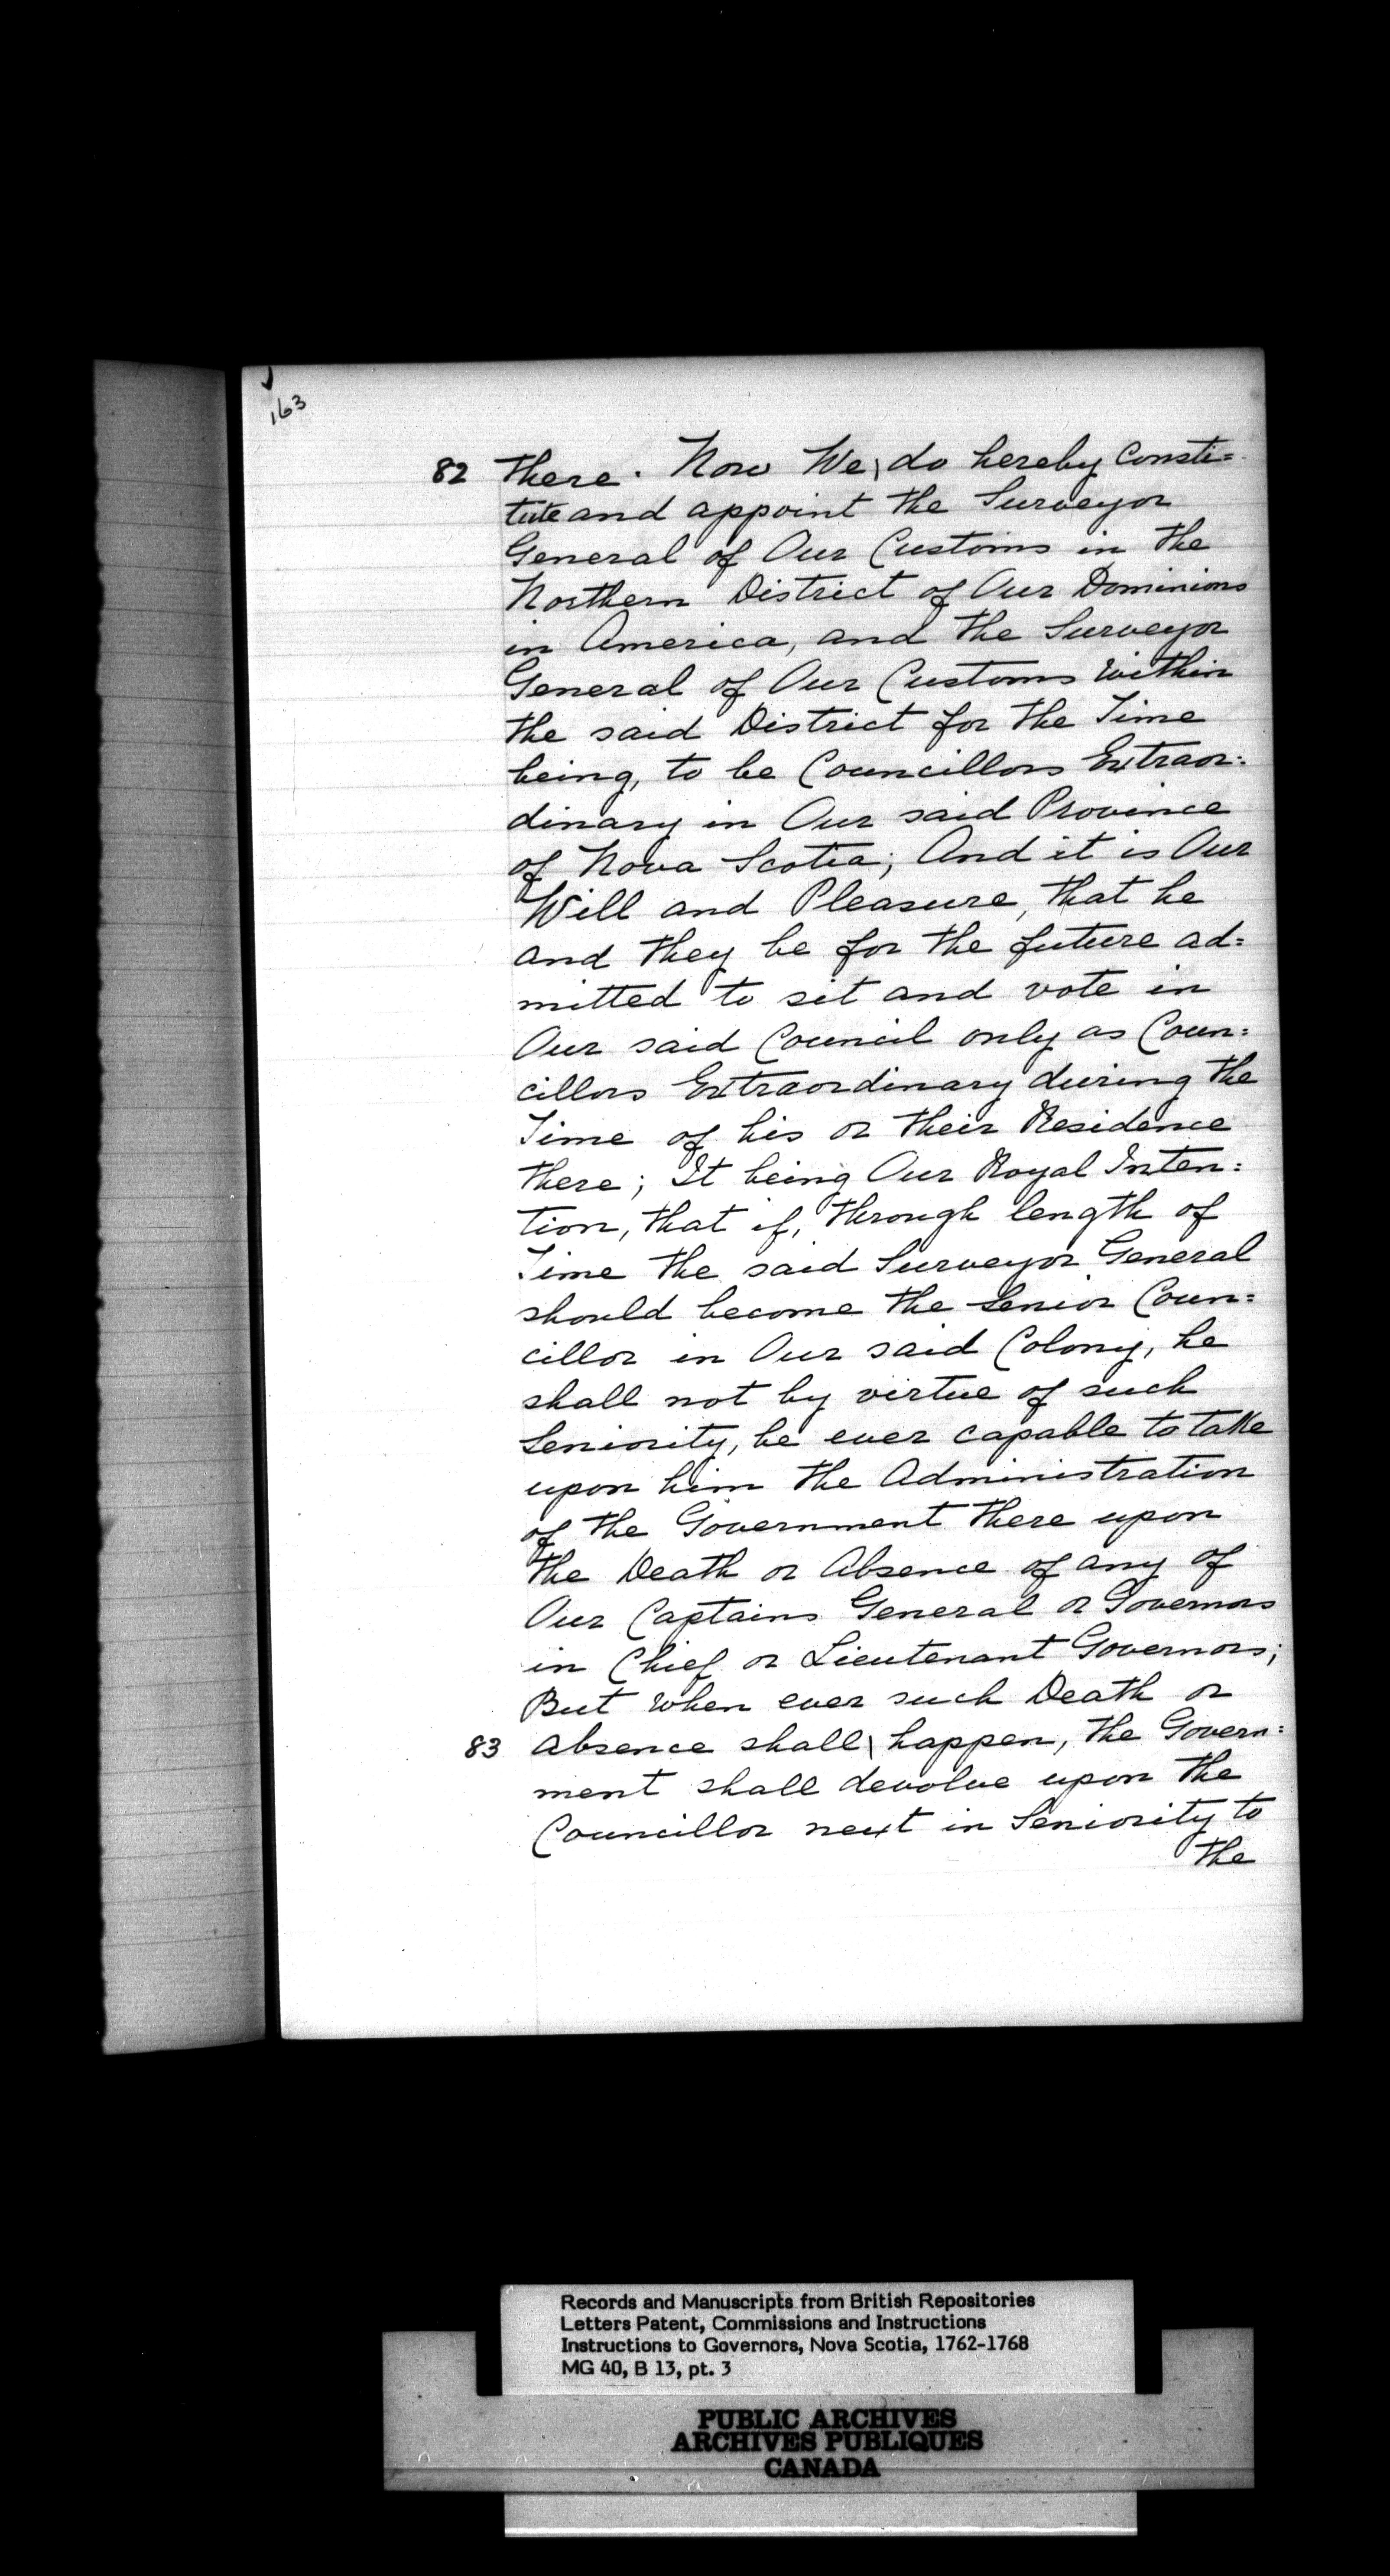 163
82 there. Now We\ do hereby Consti=
tute and appoint the Surveyor
General of Our Customs in the
Northern District of Our Dominions
in America, and the Surveyor
General of Our Customs within
the said District for the Time
being, to be Councillors Extraor=
dinary in Our said Province
of Nova Scotia; And it is Our
Will and Pleasure, that he
and they be for the future ad=
mitted to sit and vote in
Our said Council only as Coun=
cillors Extraordinary during the
Time of his or their Residence
there; It being Our Royal Inten=
tion, that if, through length of
Time the said Surveyor General
should become the Senior Coun=
cillor in Our said Colony, he
shall not by virtue of such
Seniority, be ever capable to take
upon him the Administration
of the Government there upon
the Death or Absence of any of
Our Captains General or Governors
in Chief or Lieutenant Governors;
But when ever such Death or
83 absence shall\ happen, the Govern=
ment shall devolve upon the
Councillor next in Seniority to
the
Records and Manuscripts from British Repositories
Letters Patent, Commissions and Instructions
Instructions to Governors, Nova Scotia, 1762-1768
MG 40, B 13, pt. 3
PUBLIC ARCHIVES
ARCHIVES PUBLIQUES
CANADA